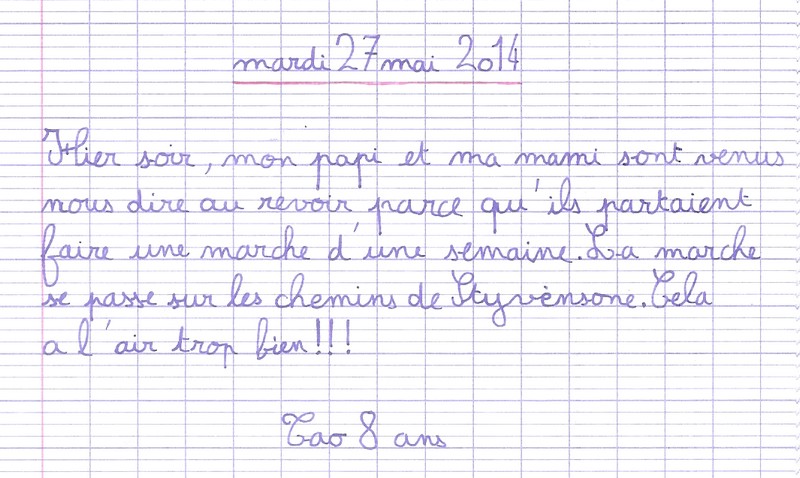 mardi 27 mai 2014
Hier soir, mon papi et ma mami sont venus
nous dire au revoir parce qu'ils partaient
faire une marche d'une semaine. La marche
se passe sur les chemins de Styvènsone. Cela
a l'air trop bien!!!
Tao 8 ans